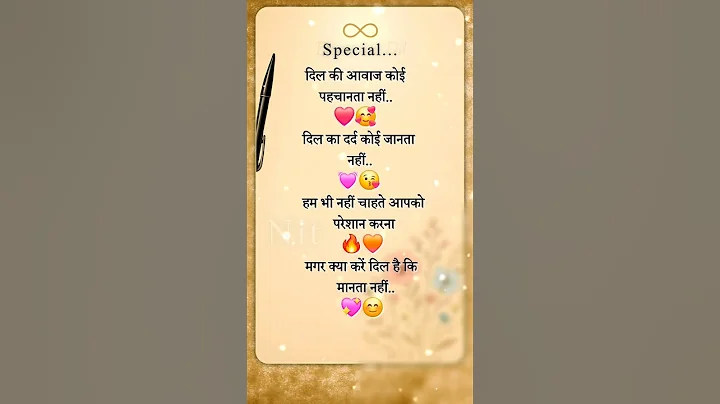 Special...
दिल की आवाज कोई
पहचानता नहीं..
❤️🥰
दिल का दर्द कोई जानता
नहीं..
💓😘
हम भी नहीं चाहते आपको
परेशान करना
🔥🧡
मगर क्या करें दिल है कि
मानता नहीं..
💖😊